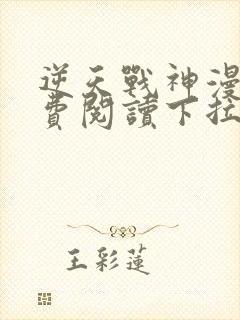 逆天戰神漫
費閱讀下拉
王彩蓮